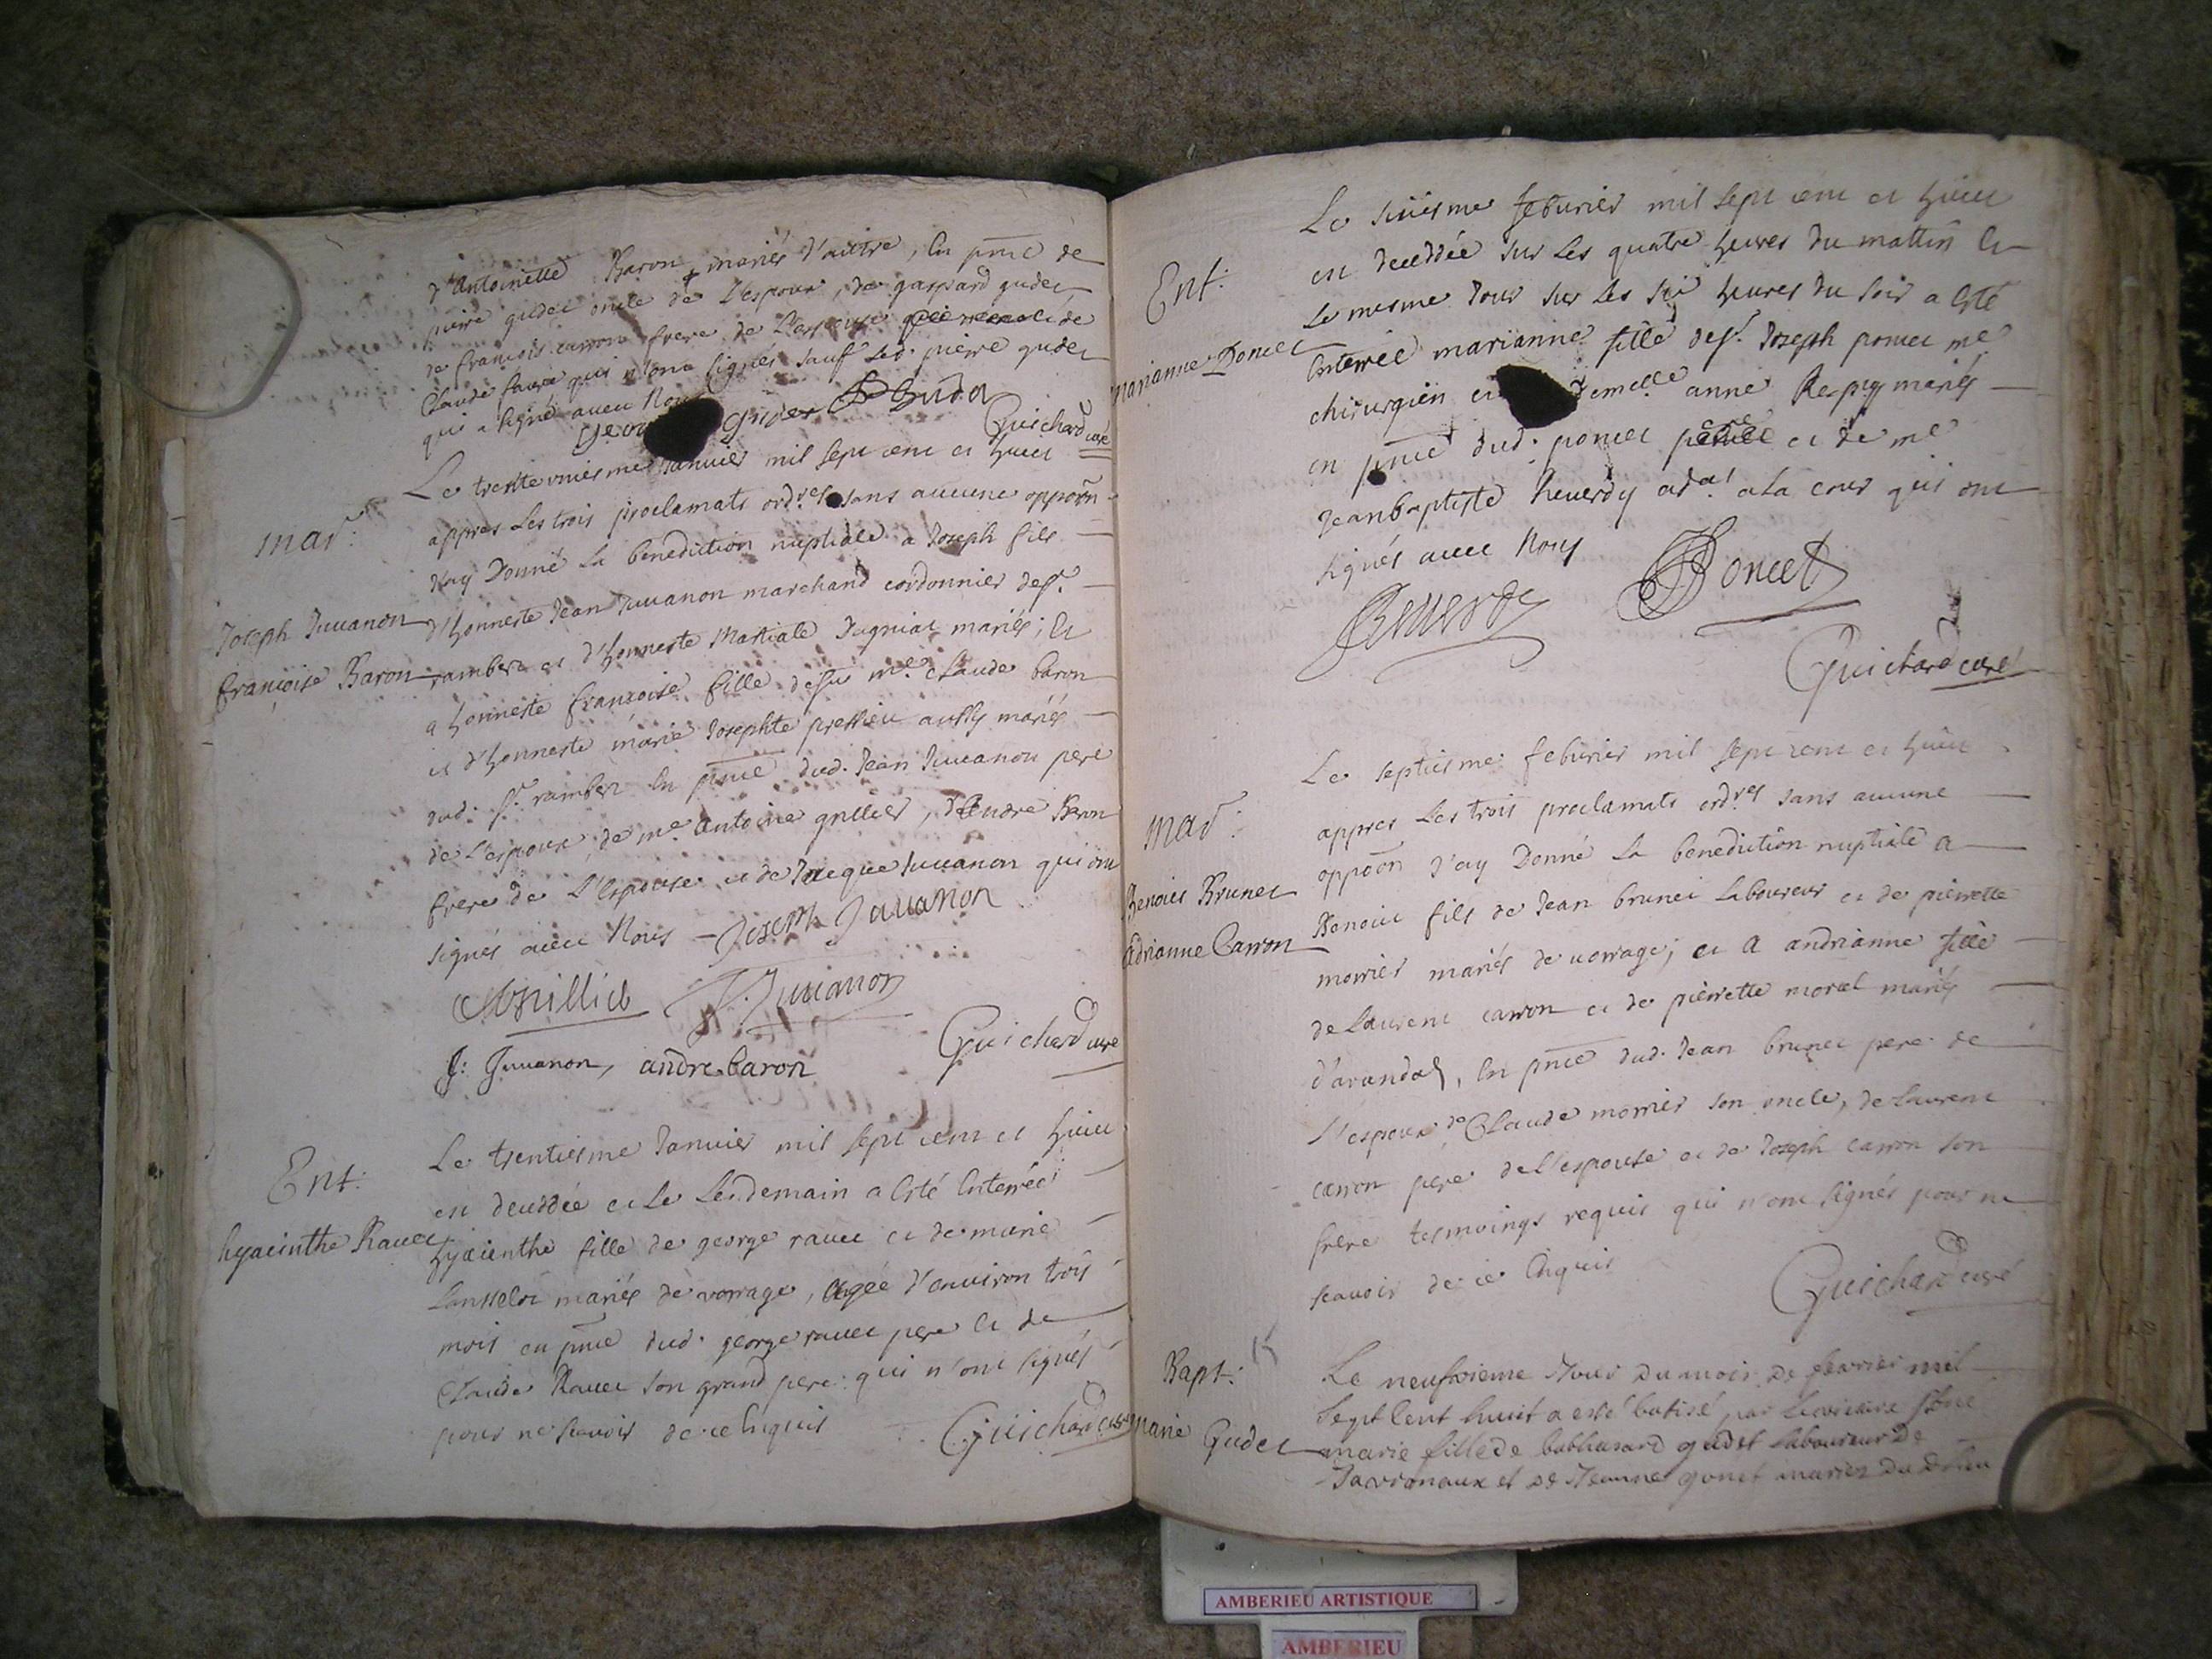 d'Antoinette Baron mariés d'autre, En pnce de
pierre gudet oncle de L'espoux, de gaspard gudet
de francois carron frere de L'espouse de
Claude faure qui n'ont signés sauf Led. pierre gudet
qui a signé avec Nous
gudet
Guichard curé
mar:
Joseph Juuanon
françoise Baron
Le trente uniesme Januier mil sept cent et huict
appres Les trois proclamats ordres sans aucune oppoon
J'ay Donné La benediction nuptiale a Joseph fils
d'honneste Jean Juuanon marchand cordonnier de St.
rambert et d'honneste Martiale Dugniat mariés; Et
a honneste françoise fille de feu me. Claude baron
et d'honneste marie Josephte pressieu aussy mariés
dud. St. rambert En pnce dud. Jean Juuanon pere
de L'espoux, de me. Antoine grillet, d'Endre Baron
frere de L'espouse et de Jacque Juuanon qui ont
signés avec Nous Joseph Juuanon
J. Juuanon
J: Juuanon, andre baron Guichard curé
Ent:
hyacinthe Rauet
Le trentiesme Januier mil sept cent et huict
est deceddée et Le Lendemain a Esté Enterrée
hyacienthe fille de george rauet et de marie
Lansseloz mariés de vorrage, Agée d'enuiron trois
mois en pnce dud. george rauet pere Et de
Claude Rauet son grand pere qui n'ont signés
pour ne scauoir de ce Enquis Guichard curé
Ent:
marianne Poncet
Le siziesme feburier mil sept cent et huict
est deceddée sur Les quatre heures du mattin Et
Le mesme Jour sur Les six heures du soir a Esté
Enterrée marianne fille de Sr. Joseph poncet me
chirurgien et demelle anne Respy mariés
en pnce dud. poncet pere et de me
Jeanbaptiste Reuerdy adat a La cour qui ont
signés avec Nous
Reuerdy Poncet
Guichard curé
mar:
Benoict Brunet
Adrianne Carron
Le septiesme feburier mil sept cent et huict
appres Les trois proclamats ordres sans aucune
oppoon J'ay Donné La benediction nuptiale a
Benoict fils de Jean brunet Laboureur et de pierrette
morrier mariés de vorrage; et A andrianne fille
de Laurent carron et de pierrette morel mariés
d'arandas, En pnce dud. Jean brunet pere de
L'espoux de Claude morrier son oncle, de Laurent
carron pere de L'espouse et de Joseph carron son
frere tesmoings requis qui n'ont signés pour ne
scauoir de ce Enquis
Guichard curé
Bapt:
marie Gudet
Le neufvieme Jour du mois de feurier mil
Sept Cent huit a esté batisé par
marie fille de balthasard gudet Laboureur de
et de Jeanne gonet mariez du
AMBERIEU ARTISTIQUE
AMBERIEU